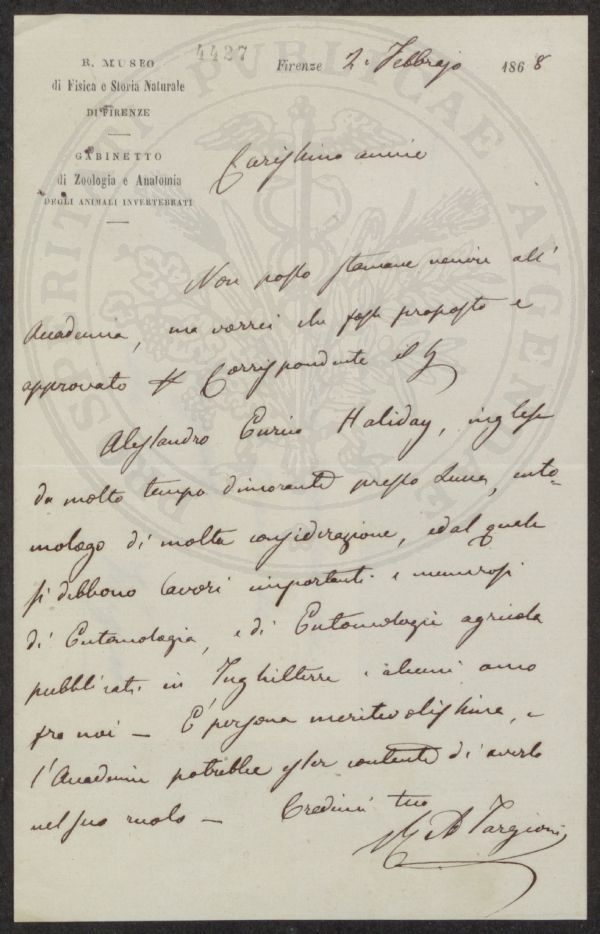 4427
R. MUSEO
di Fisica e Storia Naturale
DI FIRENZE
GABINETTO
di Zoologia e Anatomia
DEGLI ANIMALI INVERTEBRATI
Firenze 2. Febbrajo 1868
Carissimo amico
Non posso stamane venire all'
Accademia, ma vorrei che fosse proposto e
approvato Corrispondente il S
Alessandro Enrico Haliday, inglese
da molto tempo dimorante presso Lucca, ento-
mologo di molta considerazione, ed al quale
si debbono lavori importanti e numerosi
di Entomologia, e di Entomologia agricola
pubblicati in Inghilterra e alcuni anco
fra noi — E' persona meritevolissima, e
l'Accademia potrebbe esser contenta di averlo
nel suo ruolo — Credimi tuo
Targioni
PROSPERITATI PUBLICAE AUGENDAE